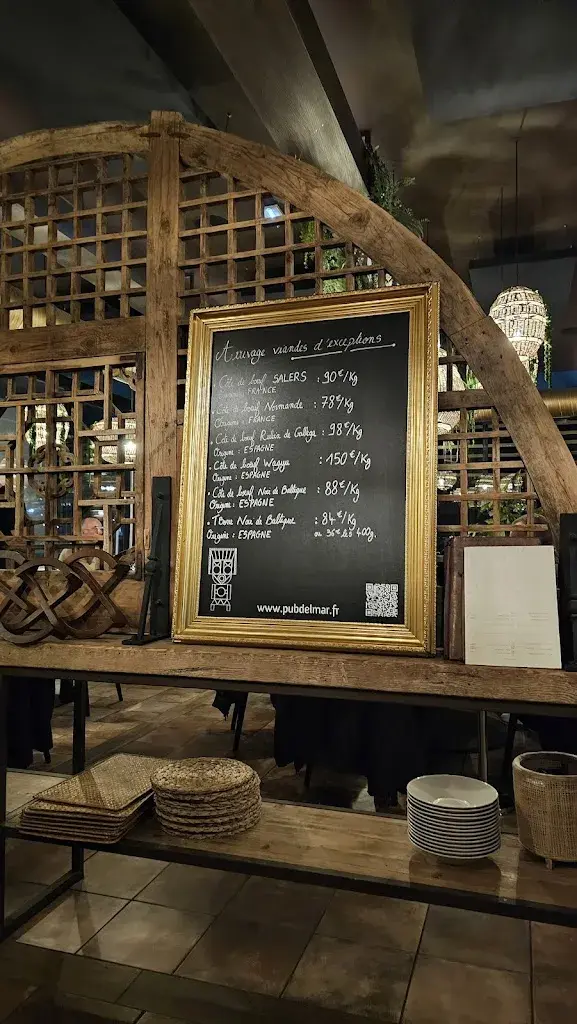 Arrivage viandes d'exceptions
Côte de boeuf SALERS : 90€/Kg
Origine : FRANCE
. Côte de boeuf Normande : 78€/Kg
Origine : FRANCE
. Côte de boeuf Rubia de Gallega : 98€/Kg
Origine : ESPAGNE
. Côte de boeuf Wagyu : 150€/Kg
Origine : ESPAGNE
. Côte de boeuf Noir de Baltique : 88€/Kg
Origine : ESPAGNE
. TBone Noir de Baltique : 84€/Kg
Origine : ESPAGNE ou 36€ les 400g.
www.pubdelmar.fr